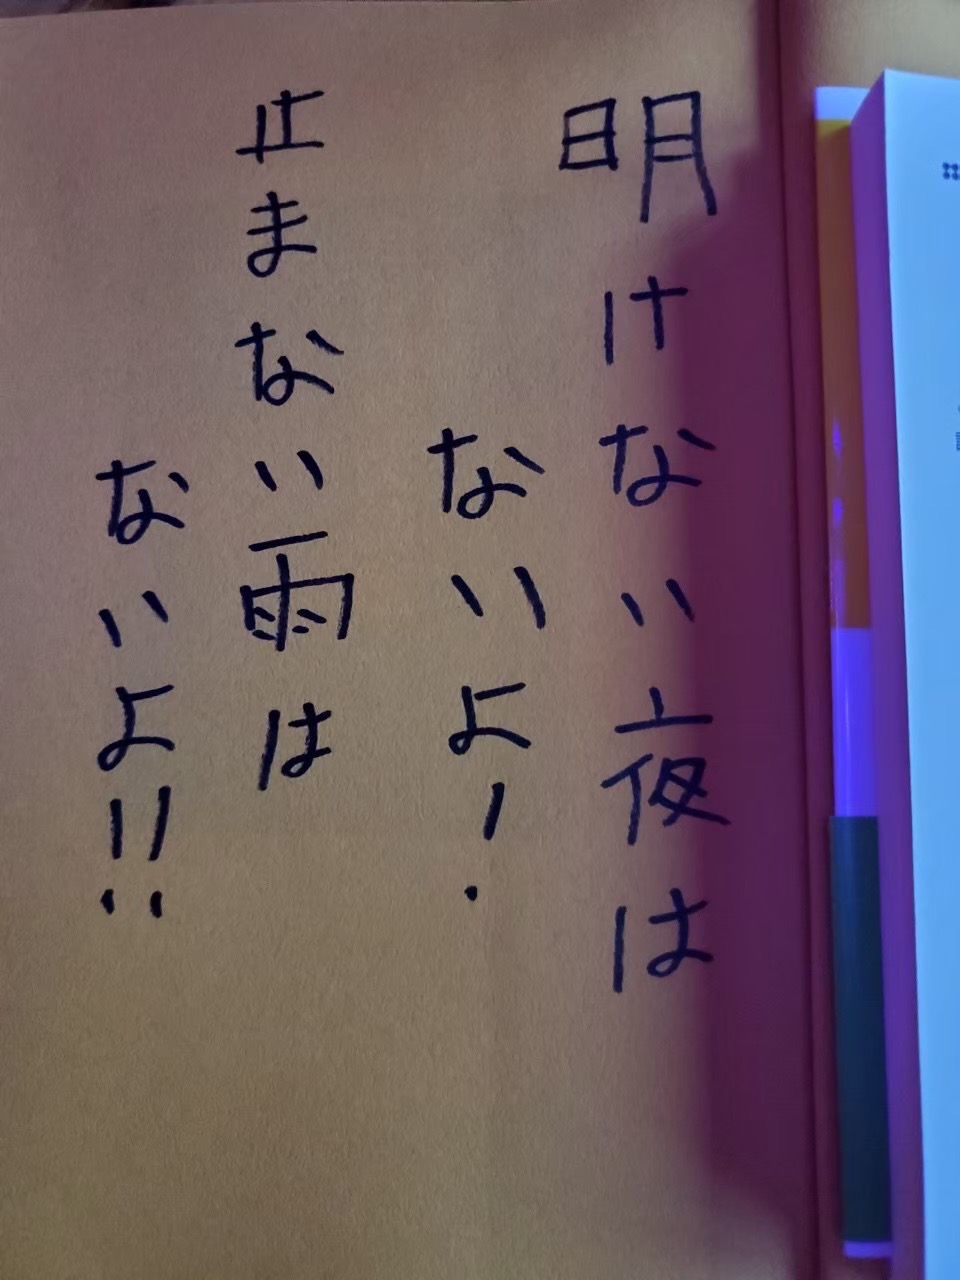 明けない夜は
ないよ!
止まない雨は
ないよ!!